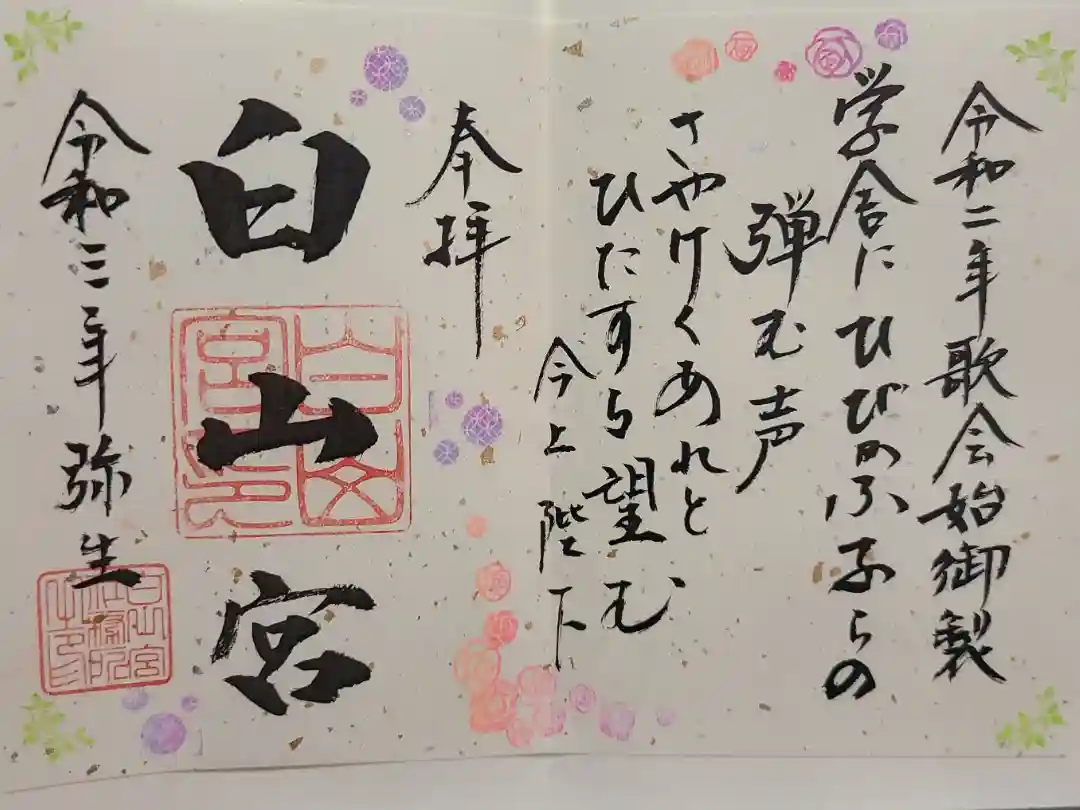 令和二年歌会始御製
学舎にひびかふ子らの
弾む声
さやけくあれと
ひたすら望む
今上陛下
奉拝
白山宮
白山
宮印
令和三年弥生
白山宮
社務所
之印